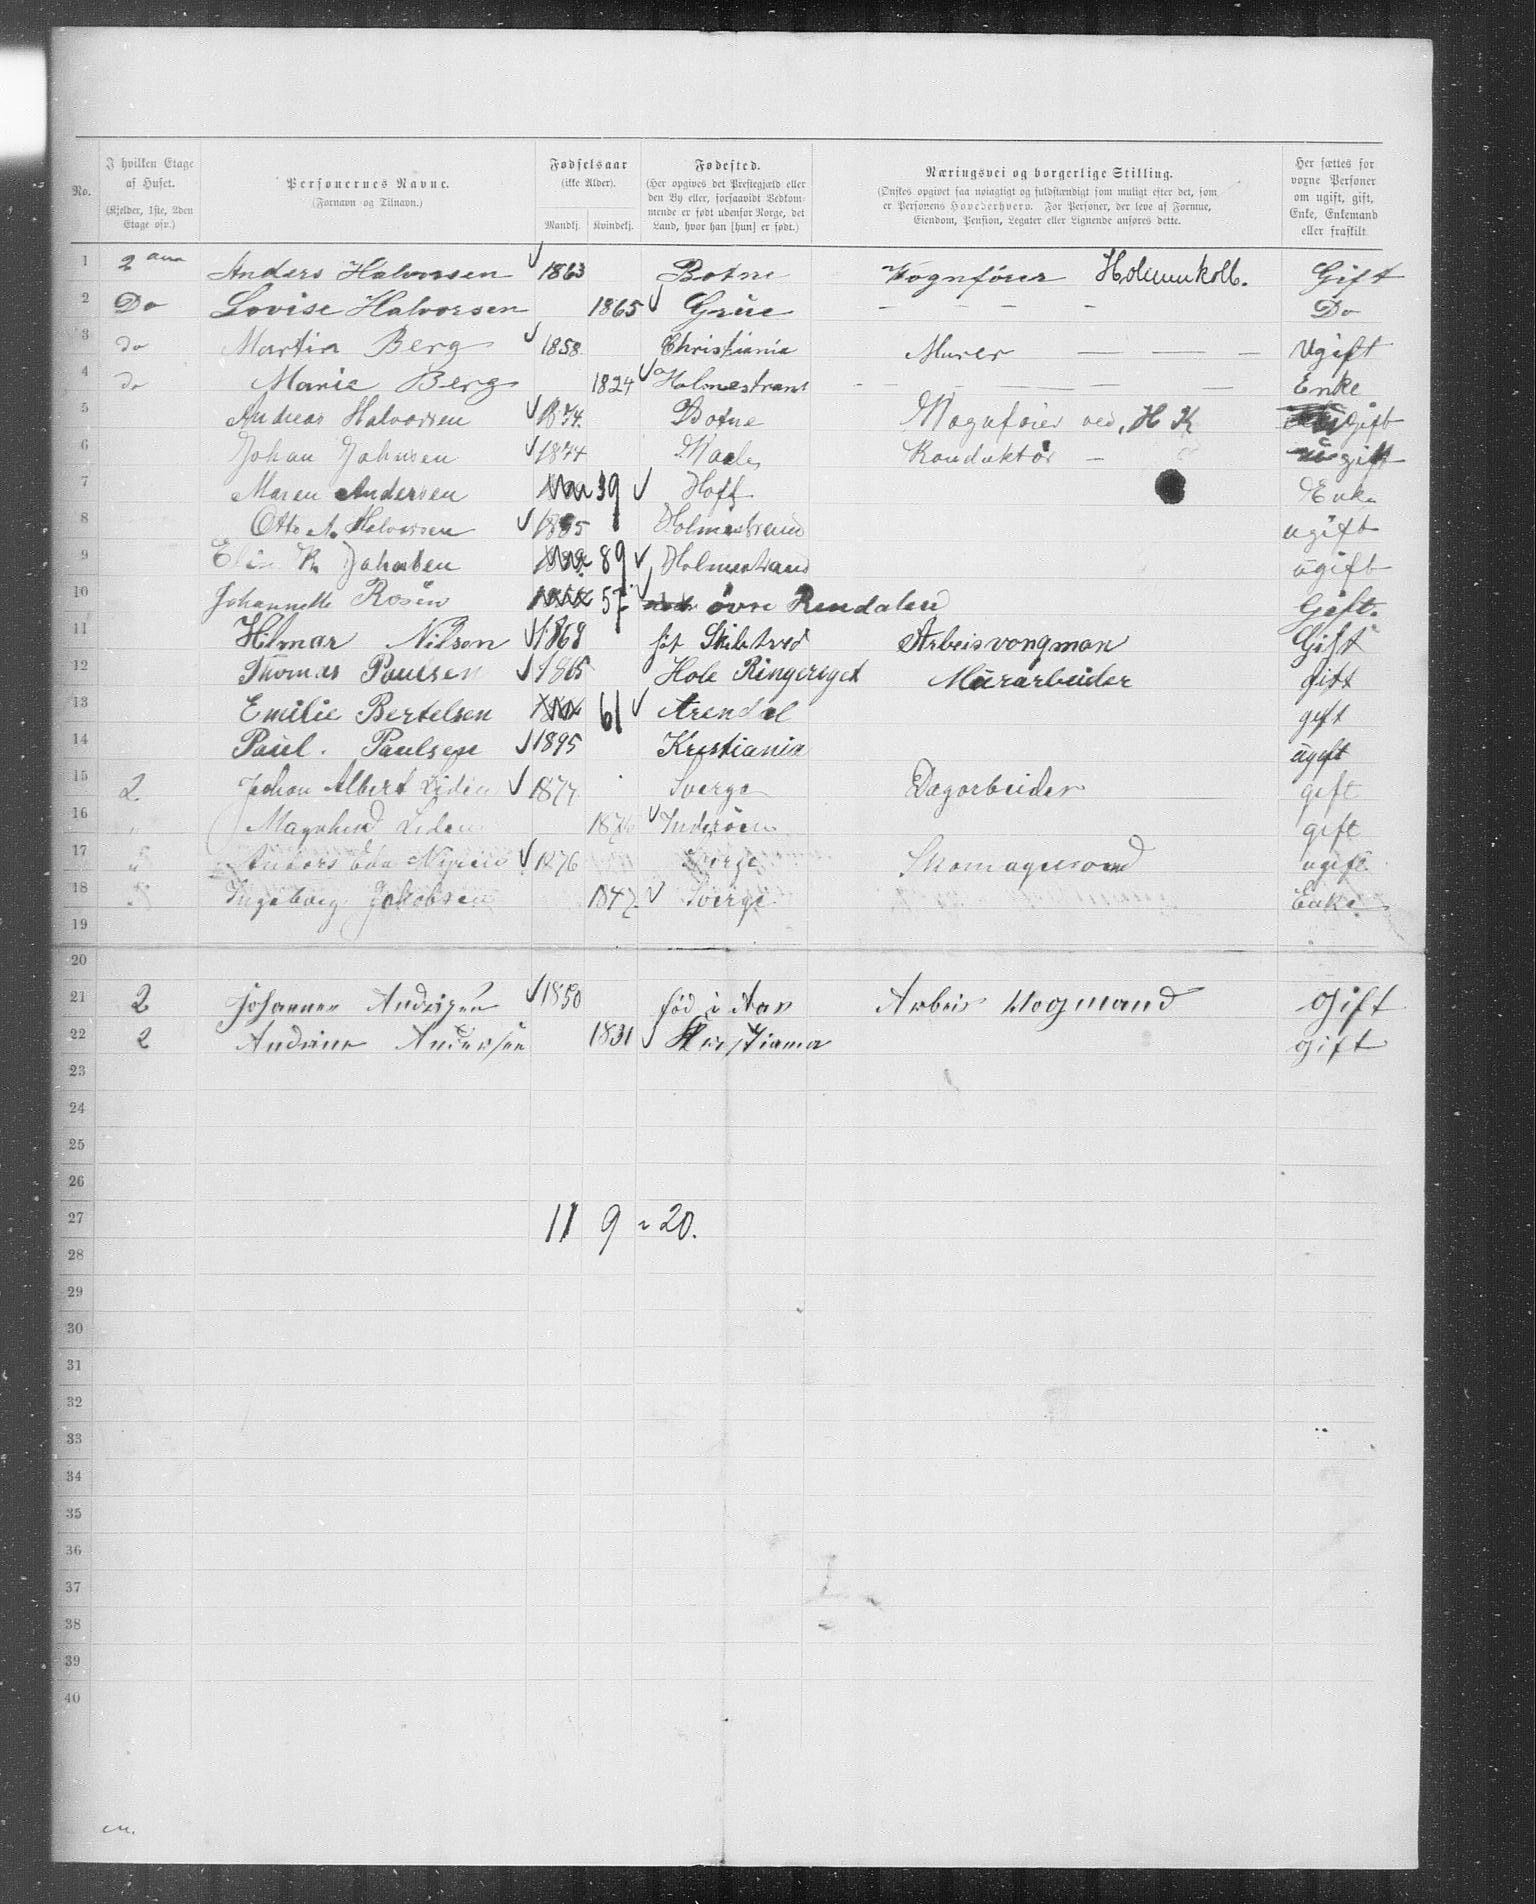 No.
I hvilken Etage af Huset.
(Kjelder, 1ste, 2den Etage osv.)
Personernes Navne.
(Fornavn og Tilnavn.)
Fødselsaar
(ikke Alder).
Mandkj. Kvindekj.
Fødested.
(Her opgives det Prestegjæld eller
den By eller, forsaavidt Vedkom-
mende er født udenfor Norge, det
Land, hvor han [hun] er født.)
Næringsvei og borgerlige Stilling.
(Ønskes opgivet saa nøiagtigt og fuldstændigt som muligt efter det, som
er Personens Hovederhverv. For Personer, der leve af Formue,
Eiendom, Pension, Legater eller Lignende anføres dette.
Her sættes for
voxne Personer
om ugift, gift,
Enke, Enkemand
eller fraskilt
1 2 Anders Halvorsen 1863 Botne Vognfører Holmenkolb. Gift
2 Do Lovise Halvorsen 1865 Grue - - - - Do
3 do Martin Berg 1858 Christiania Murer — — — Ugift
4 do Marie Berg 1824 Holmestrand - - — — — Enke
5 Andreas Halvorsen 1874. Botne Vognfører ved, H K gift
6 Johan Johnsen 1874 Konduktør - ugift
7 Maren Andersen 39 Hoff Enke
8 Otto A. Halvorsen 1885 Holmestrand ugift
9 K. Johansen 89 Holmestrand ugift
10 Johannette Rosén 57 øvre Rendalen Gift.
11 Hilmar Nilson 1868 Skibtved Arbeisvongman Gift
12 Thomas Paulsen 1865 Hole Ringeriget Mürarbeider gift
13 Emilie Bertelsen 61 Arendal gift
14 Paul. Paulsen 1895 Kristiania ügift
15 2 Johan Albert Lidén 1877 Sverge Dagarbeider gift
16 " Magnhild Liden 1876 Inderøen gift
17 " Anders 1876 Sverge ugift
18 " Ingeborg Jakobsen 1847 Sverge Enke
19
20
21 2 Johannes Andersen 1850 fød i Aas Arbeis Wogmand Gift
22 2 Andrine Andersen 1831 Kristiania Gift
23
24
25
26
27 11 9 = 20.
28
29
30
31
32
33
34
35
36
37
38
39
40